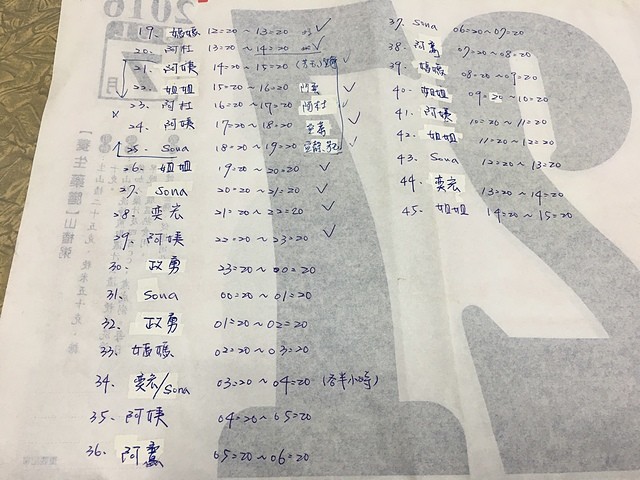 2016
19. 媽媽 12=20~13=20
20. 阿杜 13=20~14=20
21. 阿姨 14=20~15=20
22. 姐姐 15=20~16=20
23. 阿杜 16=20~17=20 阿杜
24. 阿姨 17=20~18=20
25. Sona 18=20~19=20
26. 姐姐 19=20~20=20
27. Sona 20=20~21=20
28. 奕宏 21=20~22=20
29. 阿姨 22=20~23=20
30. 政勇 23=20~00=20
31. Sona 00=20~01=20
32. 政勇 01=20~02=20
33. 媽媽 02=20~03=20
34. 奕宏/Sona 03=20~04=20 (各半小時)
35. 阿姨 04=20~05=20
36. 阿鸞 05=20~06=20
37. Sona 06=20~07=20
38. 阿鸞 07=20~08=20
39. 媽媽 08=20~09=20
40. 姐姐 09=20~10=20
41. 阿姨 10=20~11=20
42. 姐姐 11=20~12=20
43. Sona 12=20~13=20
44. 奕宏 13=20~14=20
45. 姐姐 14=20~15=20